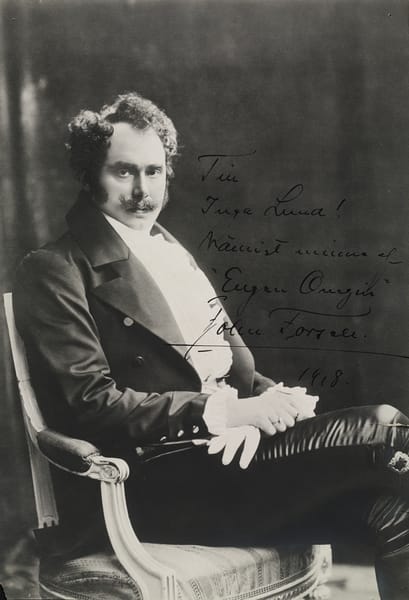 Till
Inga Lund!
Vänligt minne af
"Eugen Onegin"
John Forsell.
1918.